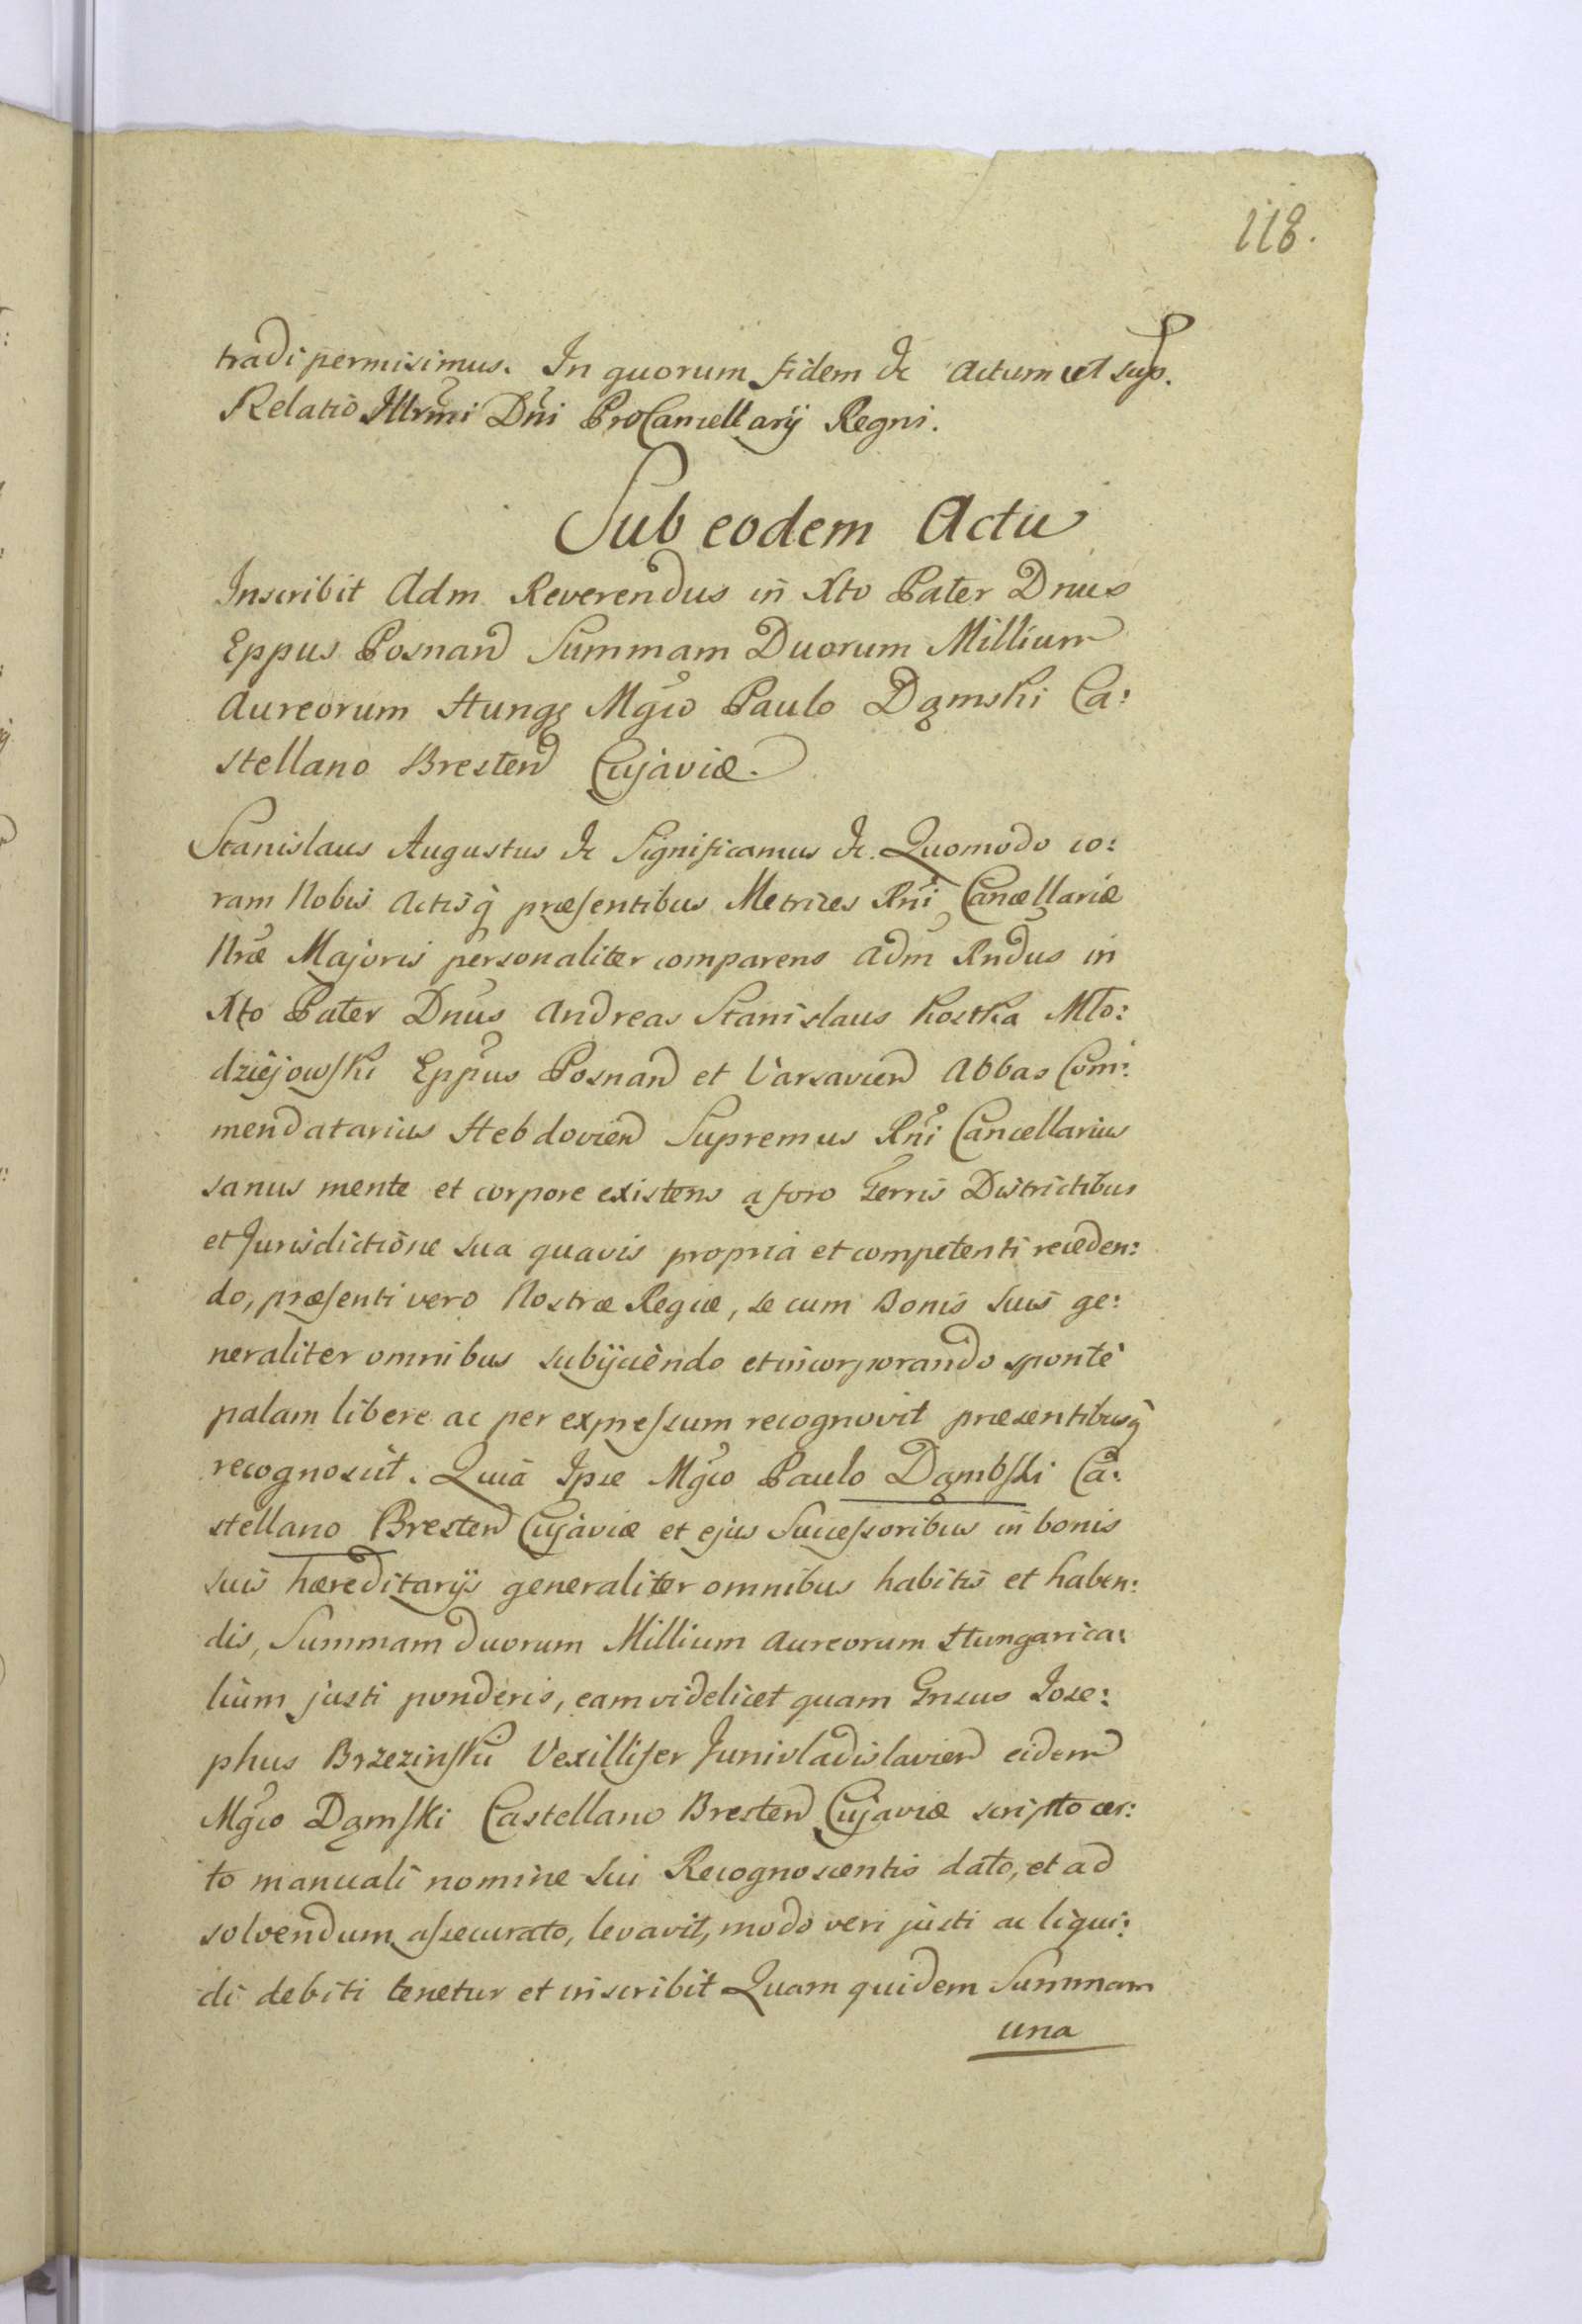 118.
tradi permisimus. In quorum fidem &c Actum ut sup.
Relatio Illrmi Dni ProCancellarij Regni.
Sub eodem Actu
Inscribit Adm Reverendus in Xto Pater Dnus
Eppus Posnan Summam Duorum Millium
Aureorum Hung Mgco Paulo Dąmski Ca:
stellano Bresten Cujaviæ.
Stanislaus Augustus &c Significamus &c. Quomodo co:
ram Nobis Actisq præsentibus Metrices Rni Cancellariæ
Nræ Majoris personaliter comparens Adm Rndus in
Xto Pater Dnus Andreas Stanislaus Kostka Mło:
dziejowski Eppus Posnan et Varsavien Abbas Com:
mendatarius Hebdovien Supremus Rni Cancellarius
sanus mente et corpore existens a foro Terris Districtibus
et Jurisdictione sua quavis propria et competenti receden:
do, præsenti vero Nostræ Regiæ, se cum Bonis suis ge:
neraliter omnibus subijciendo et incorporando sponte
palam libere ac per expressum recognovit præsentibusq
recognoscit. Quia Ipse Mgco Paulo Dąmbski Ca:
stellano Bresten Cujaviæ et ejus Successoribus in bonis
suis hæreditarijs generaliter omnibus habitis et haben:
dis, Summam duorum Millium Aureorum Hungarica:
lium justi ponderis, eam videlicet quam Gnsus Jose:
phus Brzezinski Vexillifer Junivladislavien eidem
Mgco Dąmski Castellano Bresten Cujaviæ scripto cer:
to manuali nomine sui Recognoscentis dato, et ad
solvendum assecurato, levavit, modo veri justi ac liqui:
di debiti tenetur et inscribit Quam quidem Summam
una